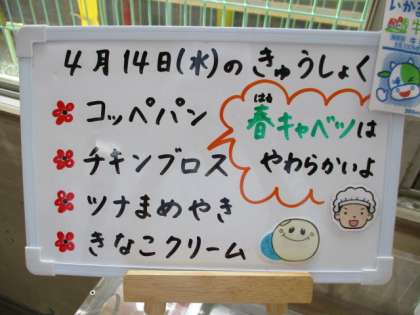 4月14日(水)のきゅうしょく
コッペパン
チキンブロス
ツナまめやき
きなこクリーム
はる
春キャベツは
やわらかいよ
いかる